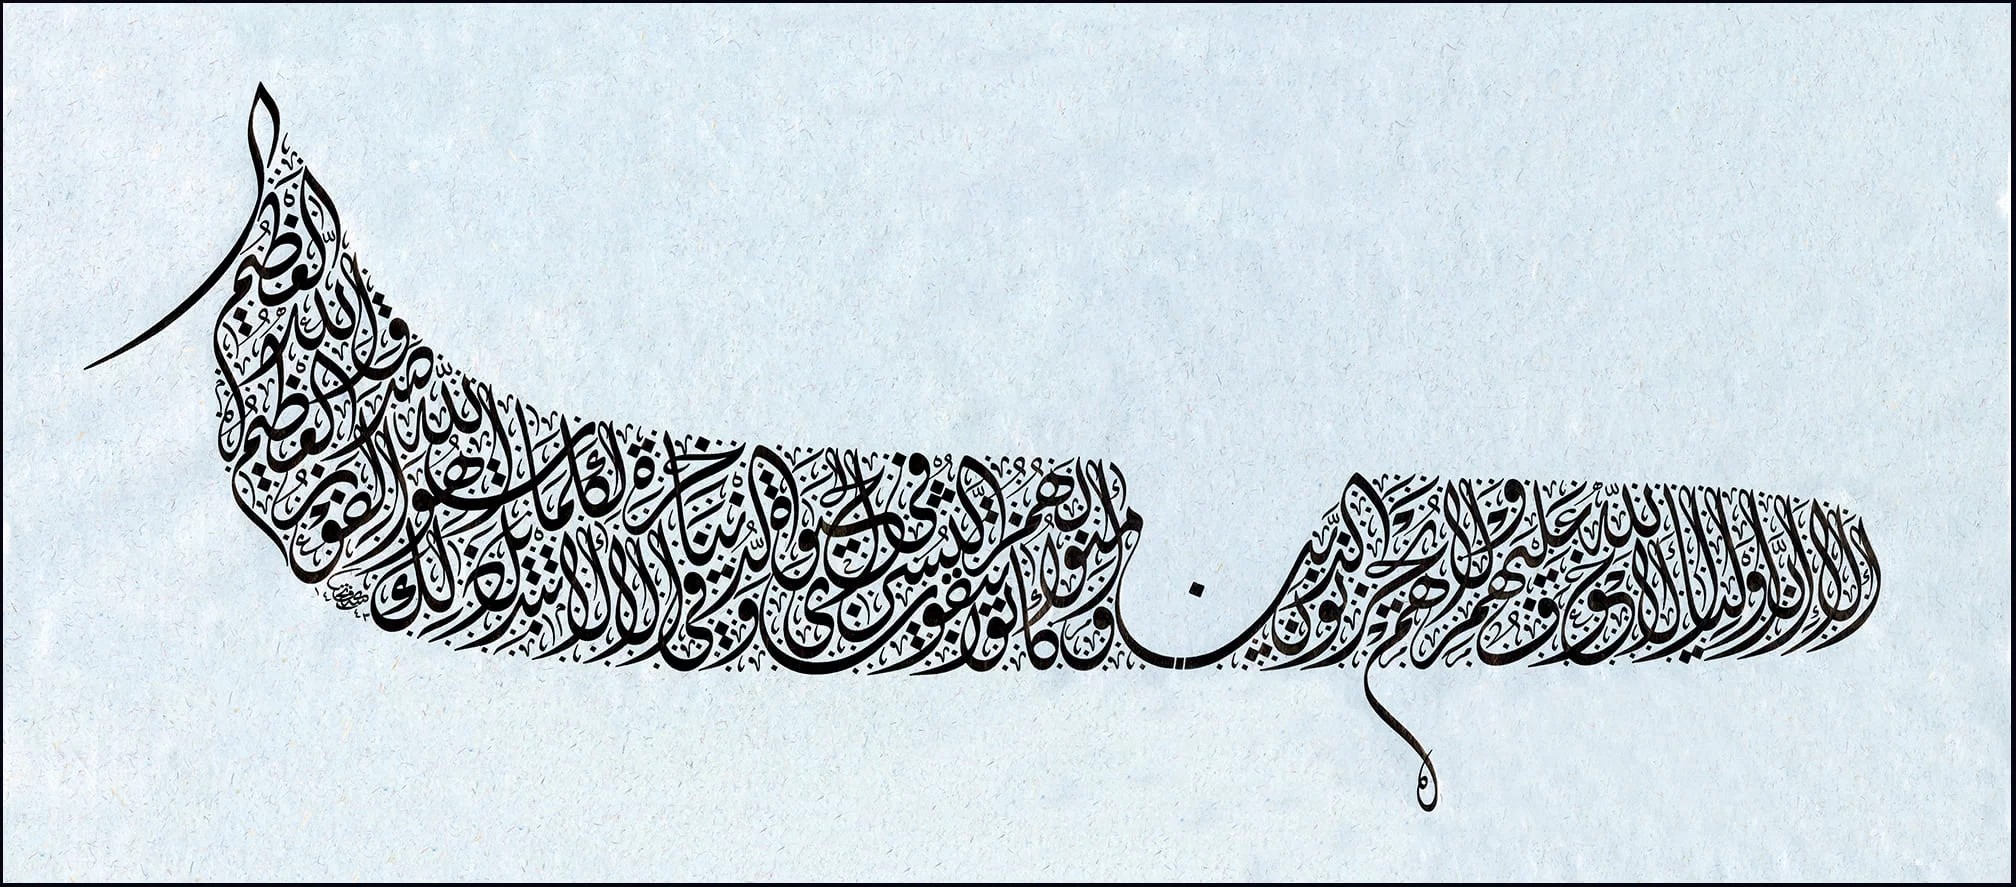 ألا إن أولياء الله لا خوف عليهم ولا هم يحزنون الذين آمنوا وكانوا يتقون لهم البشرى في الحيوة الدنيا وفي الآخرة لا تبديل لكلمات الله ذلك هو الفوز العظيم صدق الله العظيم